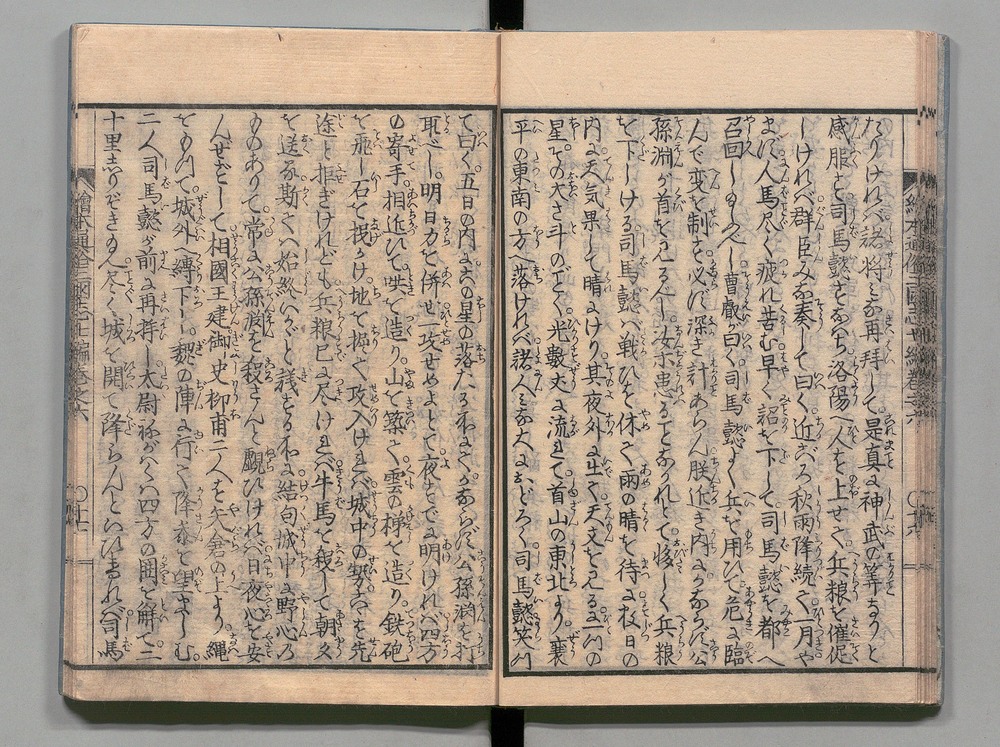 なりければ諸将みな再拝して是真に神武の筭なりと
感服す司馬懿すなはち洛陽へ人を上せて兵粮を催促
しければ群臣みな奏して曰く近ごろ秋雨降続て一月や
まず人馬尽く疲れ苦む早く詔を下して司馬懿を都へ
召回しめ玉へ曹叡が曰く司馬懿よく兵を用ひて危に臨
んで変を制す必ず深き計あらん朕近き内にかならず公
孫淵が首をみるべし汝等患ることなかれとて 兵粮
を下しける司馬懿ハ戦ひを休て雨の晴を待に一夜の
内に天気果して晴にけり其夜外に出て天文をみるに一つの
星その大さ斗のごとく光数丈に流れて首山の東北より襄
平の東南の方へ落ければ諸人みな大におどろく司馬懿笑つ
て曰く五日の内にかの星の落たる所にてかならず公孫淵を打
取べし明日力を併せ一攻せめよとて夜すでに明ければ四方
の寄手相近ひて 造り山を築て雲の梯を造り鉄砲
を飛し石を抛かけ地を掘て攻入ければ城中の勢 を先
途と拒ぎけれども兵粮已に尽ければ牛馬を殺して朝夕
を送る斯てハ始終いかゞと議する所に結句城中に野心の
ものありて常に公孫淵を殺さんと覗ひければ日夜心を安
んせずして相國王建御史柳甫二人を矢倉の上より縄
をもつて城外へ縛下し魏の陣に行て降参を望ましむ
二人司馬懿が前に再拝し太尉ねがハくハ四方の囲を解て二
十里しりぞき玉へ尽く城を開て降らんといひければ司馬